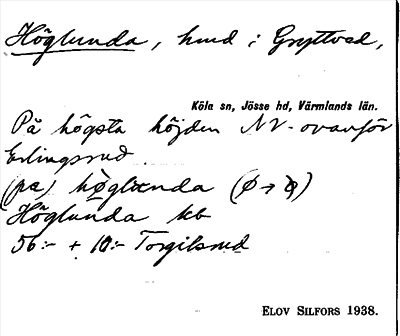 Höglunda, hmd i Gryttved,
Köla sn, Jösse hd, Värmlands län.
På högsta höjden NV-ovanför
Erlingsrud.
(pa) høglunda
Höglunda kb
56:- + 10:- Torgilsrud
ELOV SILFORS 1938.